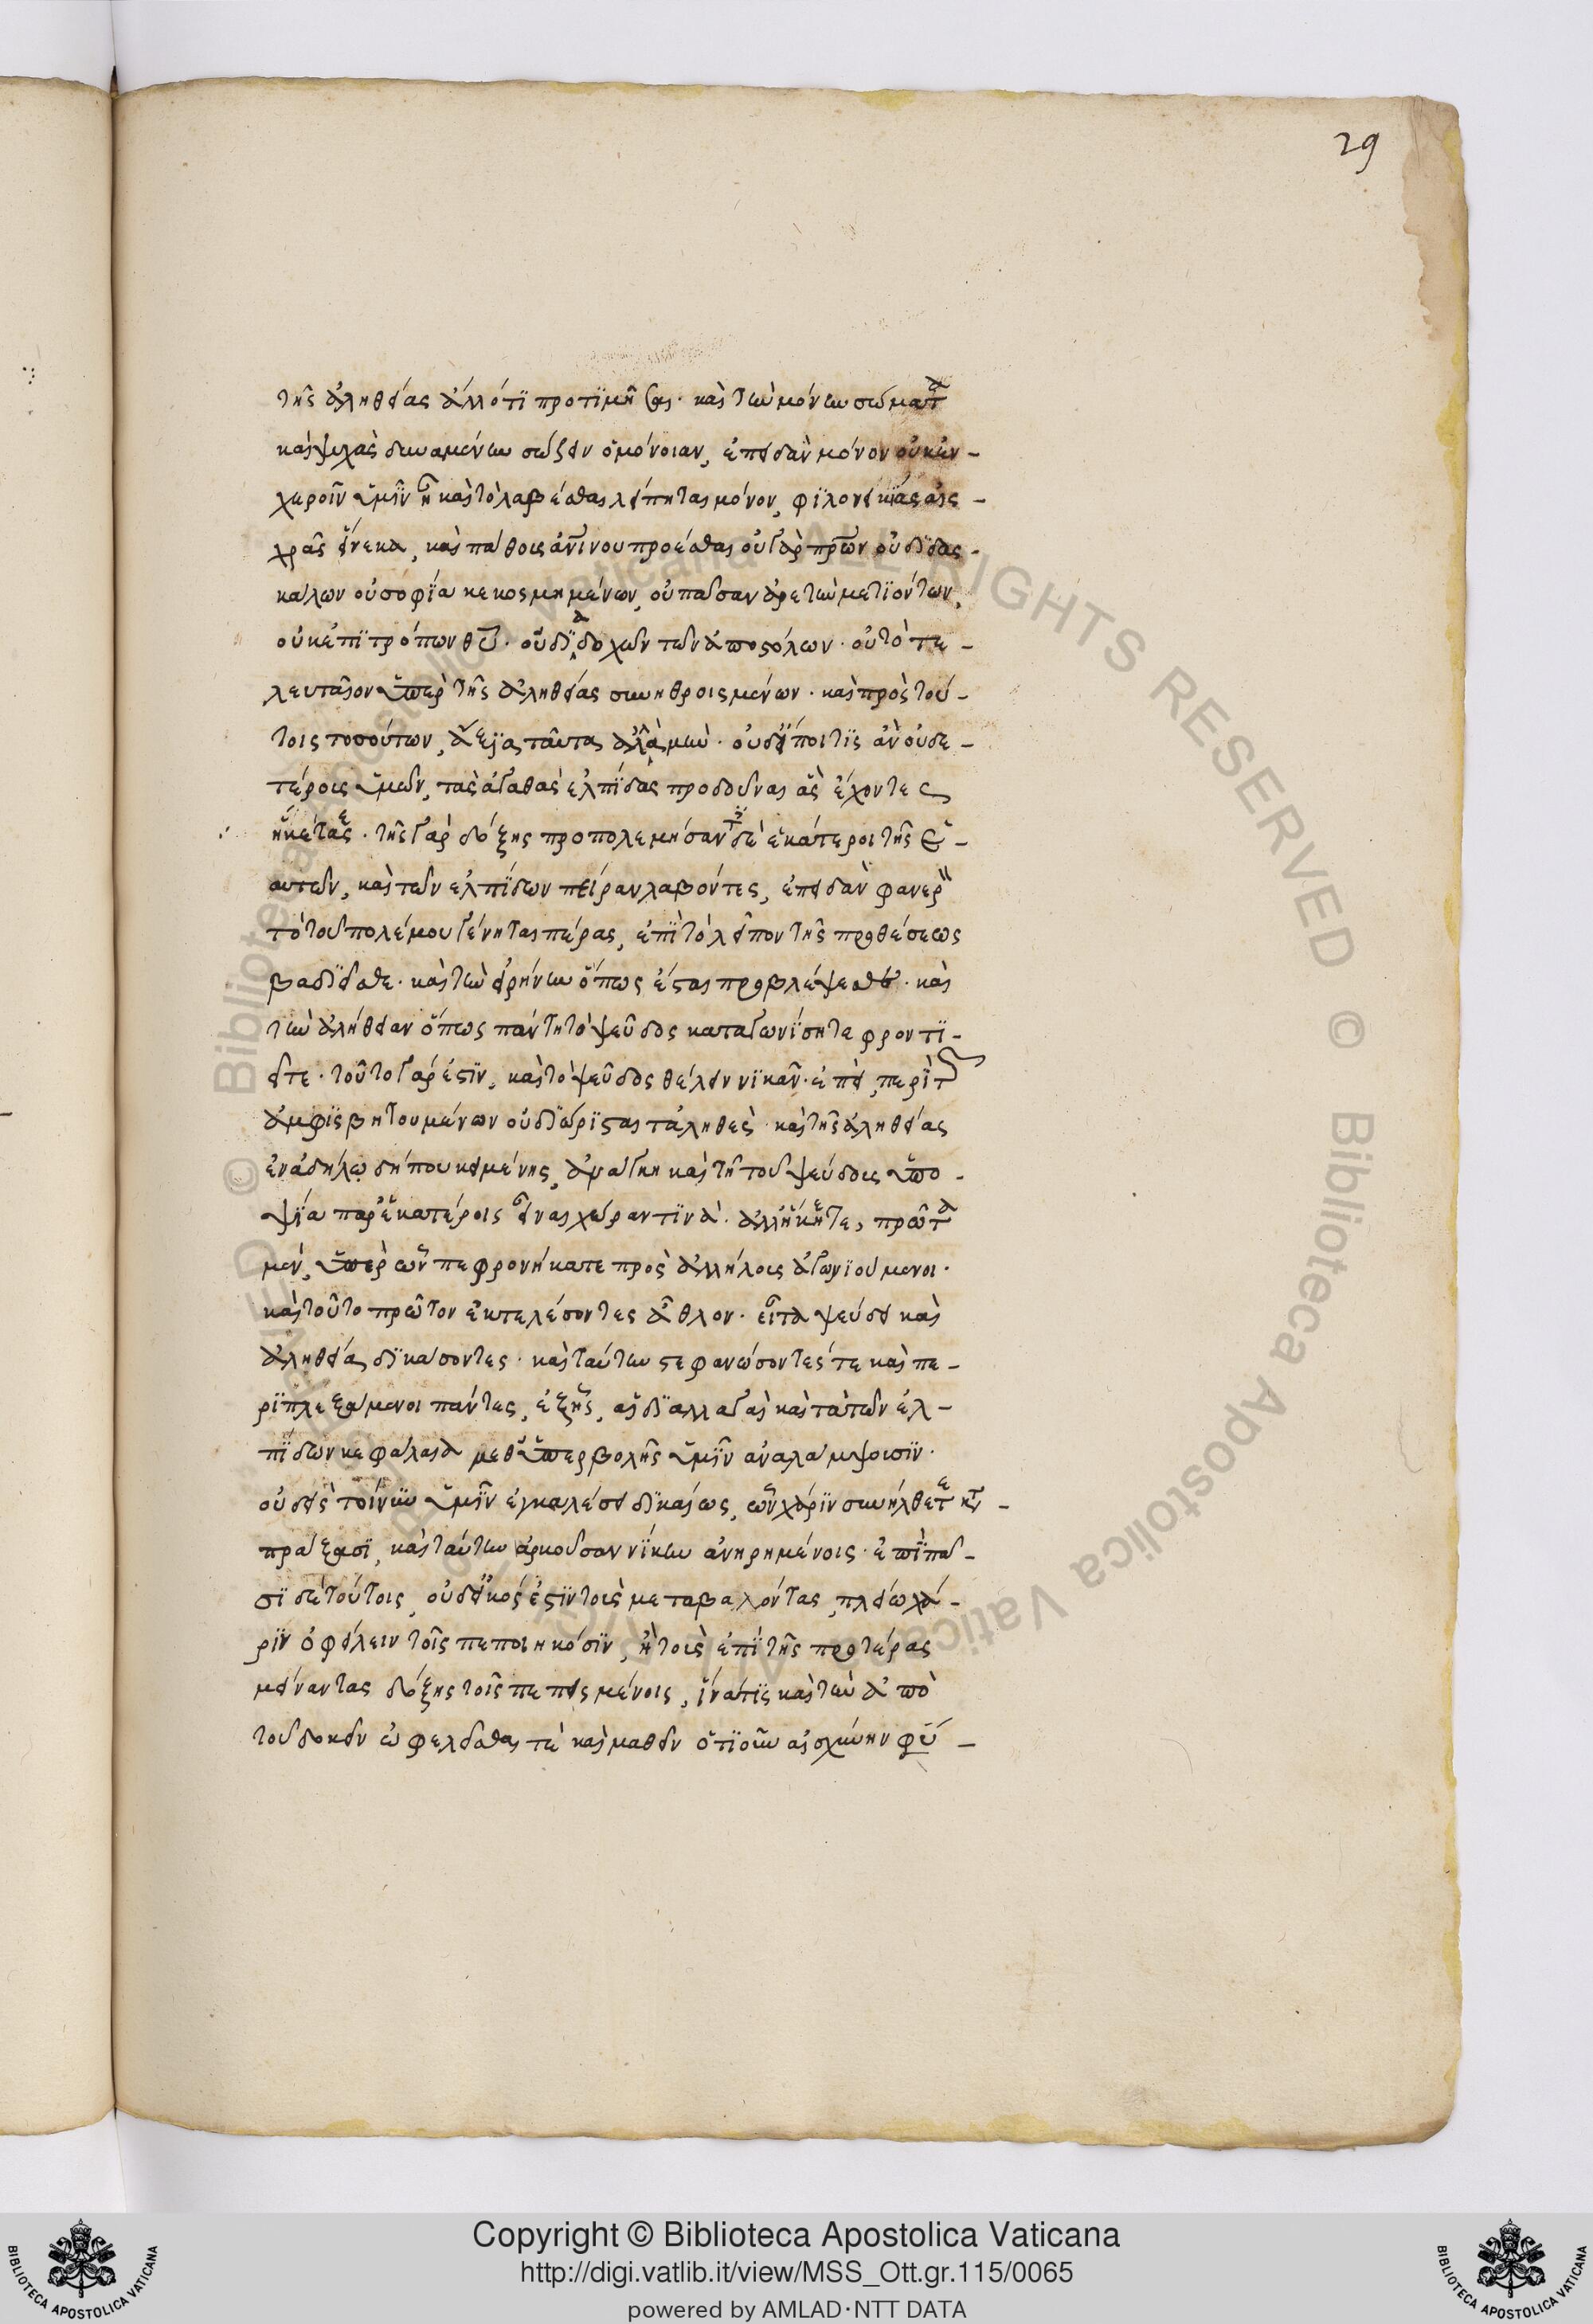 29
τῆς ἀληθείας ἄλλό τι προτιμῆσαι· καὶ τὴν μόνην σώματα
καὶ ψυχὰς δυναμένην σώζειν ὁμόνοιαν, ἐπειδὰν μόνον οὐκ ἐν
χεροῖν ὑμῖν ᾖ καὶ τὸ λαβέσθαι λείπηται μόνον, φιλονεικίας αἰσ-
χρᾶς εἵνεκα, καὶ πάθοις προέσθαι οὐ γὰρ οὐ διδασ-
κάλων οὐ σοφία κεκοσμημένων, οὐ πᾶσαν ἀρετὴν μετιόντων,
οὐκ ἐπιτρόπων θυ· οὐ διαδόχων τῶν ἀποστόλων· οὐ τὸ τε-
λευταῖον ὑπὲρ τῆς ἀληθείας συνηθροισμένων· καὶ πρὸς τού-
τοις τοσούτων, ταῦτα μὴν· οὐδ' εἴποι τις ἂν οὐδε-
τέροις ὑμῶν, τὰς ἀγαθὰς ἐλπίδας προδοῦναι ἃς ἔχοντες
ἥκετε· τῆς γὰρ δόξης προπολεμήσαντες δὲ ἑκάτεροι τῆς ἑ-
αυτῶν, καὶ τῶν ἐλπίδων πεῖραν λαβόντες, ἐπειδὰν φανερὸν
τὸ τοῦ πολέμου γένηται πέρας, ἐπὶ τὸ λεῖπον τῆς προθέσεως
βαδιεῖσθε· καὶ τὴν εἰρήνην ὅπως ἔσται προβλέψεσθε· καὶ
τὴν ἀλήθειαν ὅπως πάντη τὸ ψεῦδος καταγωνίσητε φροντι-
εῖτε· τοῦτο γάρ ἐστιν, καὶ τὸ ψεῦδος θέλειν νικᾶν· ἐπεὶ, περὶ τῶν
ἀμφισβητουμένων οὐ διώρισται τἀληθὲς· καὶ τῆς ἀληθείας
ἐν ἀδήλῳ δήπου κειμένης, ἀνάγκη καὶ τῇ τοῦ ψεύδους ὑπο-
ψία παρ' ἑκατέροις εἶναι χώραν τινὰ· ἀλλ' ἥκετε, πρῶτα
μὲν, ὑπὲρ ὧν πεφρονήκατε πρὸς ἀλλήλους ἀγωνιούμενοι·
καὶ τοῦτο πρῶτον ἐκτελέσοντες ἆθλον· εἶτα ψεύδει καὶ
ἀληθείᾳ δικάσοντες· καὶ ταύτην στεφανώσοντές τε καὶ πε-
ριπλεξάμενοι πάντες, ἑξῆς, αἱ διαλλαγαὶ καὶ τὰ τῶν ἐλ-
πίδων κεφάλαια μεθ' ὑπερβολῆς ὑμῖν ἀναλάμψουσιν·
οὐδεὶς τοίνυν ὑμῖν ἐγκαλέσει δικαίως, ὧν χάριν συνήλθετε
πράξασι, καὶ ταύτην ἀρκοῦσαν νίκην ἀνῃρημένοις· ἐπὶ πᾶ-
σι δὲ τούτοις, οὐδ' εἰκός ἐστιν τοὺς μεταβαλόντας, πλείω χά-
ριν ὀφείλειν τοῖς πεποιηκόσιν, ἢ τοὺς ἐπὶ τῆς προτέρας
μείναντας δόξης τοῖς πεπεισμένοις, ἵνα τις καὶ τὴν ἀπὸ
τοῦ δοκεῖν ὠφελεῖσθαι τὲ καὶ μαθεῖν ὁτιοῦν αἰσχύνην φύ-
Copyright © Biblioteca Apostolica Vaticana
http://digi.vatlib.it/view/MSS_Ott.gr.115/0065
powered by AMLAD·NTT DATA